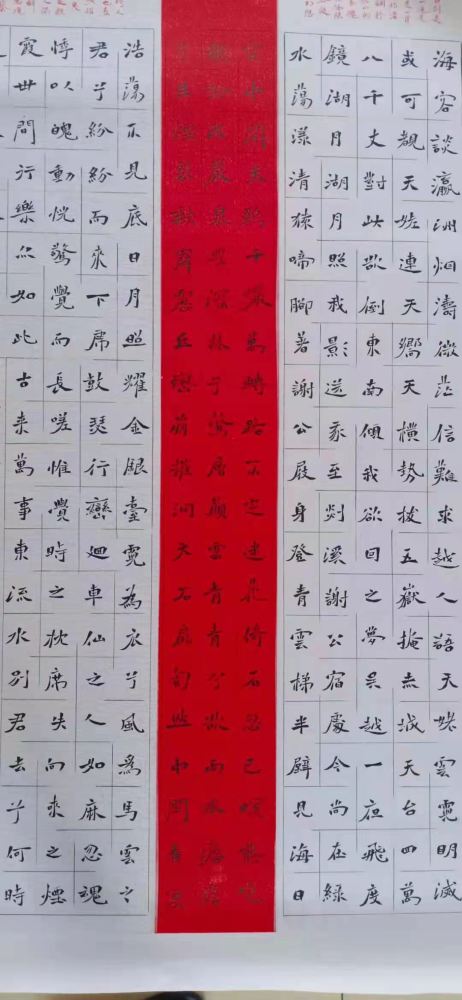 海客談瀛洲烟濤微茫信難求越人語天姥雲霓明滅
或可覩天姥連天嚮天橫勢拔五嶽掩赤城天台四萬
八千丈對此欲倒東南傾我欲因之夢吳越一夜飛度
鏡湖月湖月照我影送我至剡溪謝公宿處今尚在綠
水蕩漾清猿啼腳著謝公屐身登青雲梯半壁見海日
空中聞天雞千巖萬轉路不定迷花倚石忽已暝熊咆
龍吟殷巖泉慄深林兮驚層巔雲青青兮欲雨水澹澹
兮生煙列缺霹靂丘巒崩摧洞天石扉訇然中開青冥
浩蕩不見底日月照耀金銀臺霓為衣兮風為馬雲之
君兮紛紛而來下虎鼓瑟行鸞廻車仙之人如麻忽魂
悸以魄動怳驚覺而長嗟惟覺時之枕席失向來之煙
霞世間行樂亦如此古來萬事東流水別君去兮何時